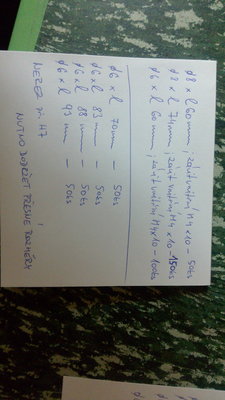 ø8 x l 60mm, závit vnitřní M4x10 - 50ks
ø8 x l 74mm, závit vnitřní M4x10 - 150ks
ø6 x l 60mm, závit vnitřní M4x10 - 100ks
ø6 x l 70mm — 50ks
ø6 x l 83mm — 50ks
ø6 x l 88mm — 50ks
ø6 x l 93mm — 50ks
NEREZ H7
NUTNO DODRŽET PŘESNÉ ROZMĚRY!